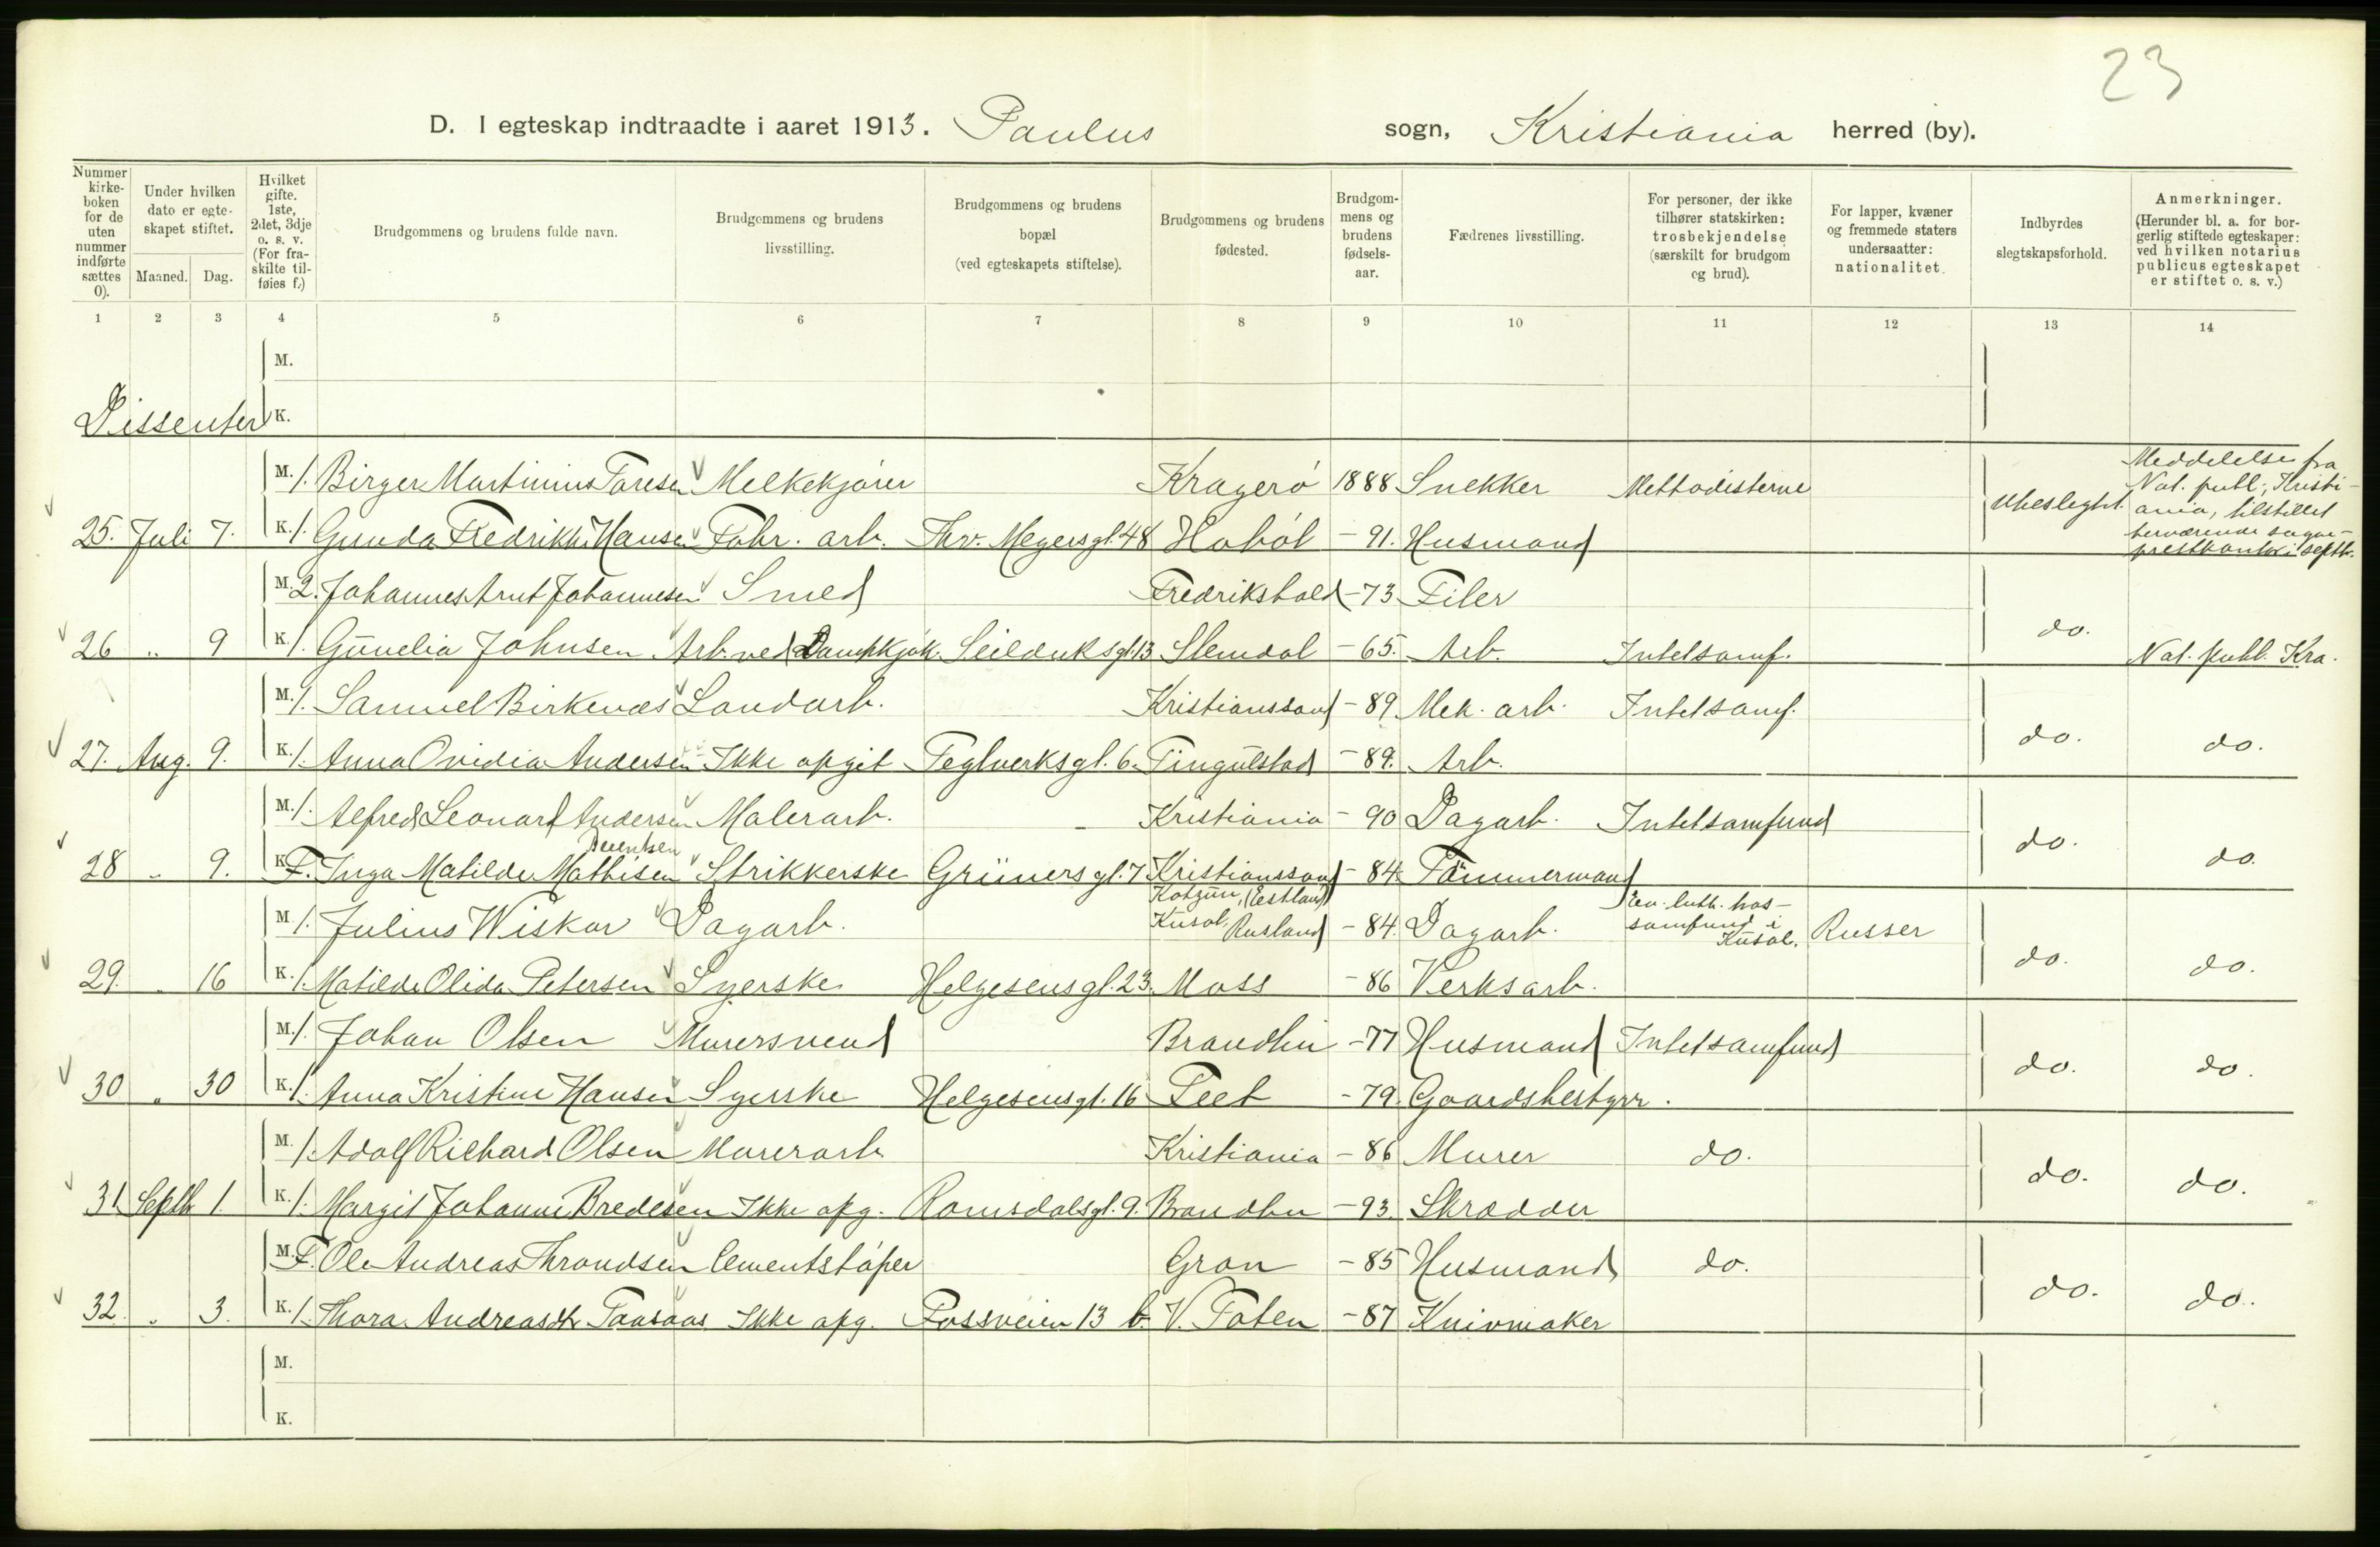 23
D. I egteskap indtraadte i aaret 1913. Paulus sogn, Kristiania herred (by).
Nummer kirke- boken for de uten nummer indførte sættes 0).
Under hvilken dato er egte- skapet stiftet.
Maaned. Dag.
Hvilket gifte. 1ste, 2det, 3dje o. s. v. (For fra- skilte til- føies f.)
Brudgommens og brudens fulde navn.
Brudgommens og brudens livsstilling.
Brudgommens og brudens bopæl (ved egteskapets stiftelse).
Brudgommens og brudens fødested.
Brudgom- mens og brudens fødsels- aar.
Fædrenes livsstilling.
For personer, der ikke tilhører statskirken: trosbekjendelse (særskilt for brudgom og brud).
For lapper, kvæner og fremmede staters undersaatter: nationalitet.
Indbyrdes slegtskapsforhold.
Anmerkninger. (Herunder bl. a. for bor- gerlig stiftede egteskaper: ved hvilken notarius publicus egteskapet er stiftet o. s. v.)
1 2 3 4 5 6 7 8 9 10 11 12 13 14
M.
Dissenter K.
M. 1. Birger Martinius Taresen Melkekjører Kragerø 1888 Snekker Methodisterne
25. Juli 7. K. 1. Gunda Fredrikke Hansen Fabr. arb. Thv. Meyersgt. 48 Hobøl -91. Husmand Ubeslegtet. Meddelelse fra Not. publ., Kristi- ania, tilstillet herværende sogne- prestkontor i septb.
M. 2. Johannes Arnt Johannesen Smed Fredrikshald -73 Filer
26 " 9 K. 1. Gunelia Johnsen Arb. ved Dampkjøk. Seilduksgt. 13 Slemdal -65. Arb. Intetsamf. do. Not. publ. Kra.
M. 1. Samuel Birkenæs Landarb. Kristianssand -89 Mek. arb. Intetsamf.
27. Aug. 9. K. 1. Anna Ovidia Andersen Ikke opgit Teglverksgt. 6. Tingulstad -89. Arb. do. do.
M. 1. Alfred Leonard Andersen Malerarb. Kristiania -90 Dagarb. Intetsamfund
28 " 9. K. F. Inga Matilde Mathisen Strikkerske Grünersgt. 7 Kristianssand -84. Tømmermand do. do.
M. 1. Julius Wiskar Dagarb. (Estland) Kusal, Rusland -84. Dagarb. Ev. luth. tros- samfund i Kusal. Russer
29. " 16 K. 1. Matilde Olida Petersen Syerske Helgesensgt. 23. Moss -86 Verksarb. do. do.
M. 1. Johan Olsen Murersvend Brandbu -77 Husmand Intetsamfund
30 " 30 K. 1. Anna Kristine Hansen Syerske Helgesensgt. 16 Tret -79. Gaardsbestyrer. do. do.
M. 1. Adolf Richard Olsen Murerarb Kristiania -86 Murer do.
31. Septb. 1. K. 1. Margit Johanne Bredesen Ikke opg. Romsdalsgt. 9. Brandbu -93. Skrædder do. do.
M. F. Ole Andreas Throndsen Cementstøper Gran -85 Husmand do.
32. " 3. K. 1. Thora Andreasdtr. Taasaas Ikke opg. Fossveien 13 b. V. Toten -87 Knivmaker do. do.
M.
K.